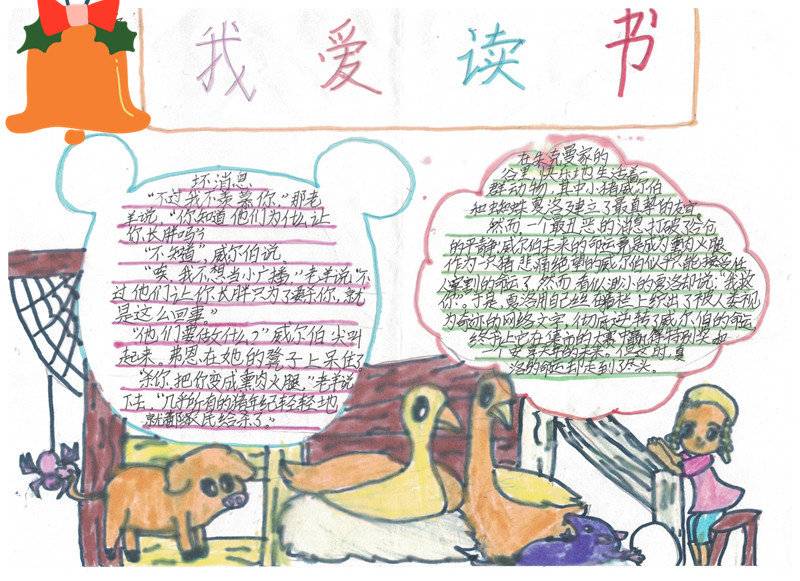 我爱读书
坏消息
“不过我不羡慕你,”那老
羊说,“你知道他们为什么让
你长胖吗?”
“不知道”,威尔伯说。
“唉,我不想当小广播,”老羊说“不
过他们让你长胖只为了要杀你,就
是这么回事。”
“他们要做什么?”威尔伯尖叫
起来,弗恩在她的凳子上呆住了
“杀你,把你变成熏肉火腿,”老羊说
下去,“几乎所有的猪年纪轻轻地
就都被农民给杀了。”
在朱克曼家的
谷里,快乐地生活着一
群动物,其中小猪威尔伯
和蜘蛛夏洛建立了最真挚的友谊
然而,一个最丑恶的消息打破了谷仓
的平静:威尔伯未来的命运竟是成为熏肉火腿
作为一只猪,悲痛绝望的威尔伯似乎只能接受任
人宰割的命运了,然而,看似渺小的夏洛却说:“我救
你”,于是,夏洛用自己丝在猪栏上织出了被人类视
为奇迹的网络文字,彻底逆转了威尔伯的命运
终于让它在集市的大赛中赢得特别奖和
一个安享天年的未来。但这时,夏
洛的命运却走到了尽头。